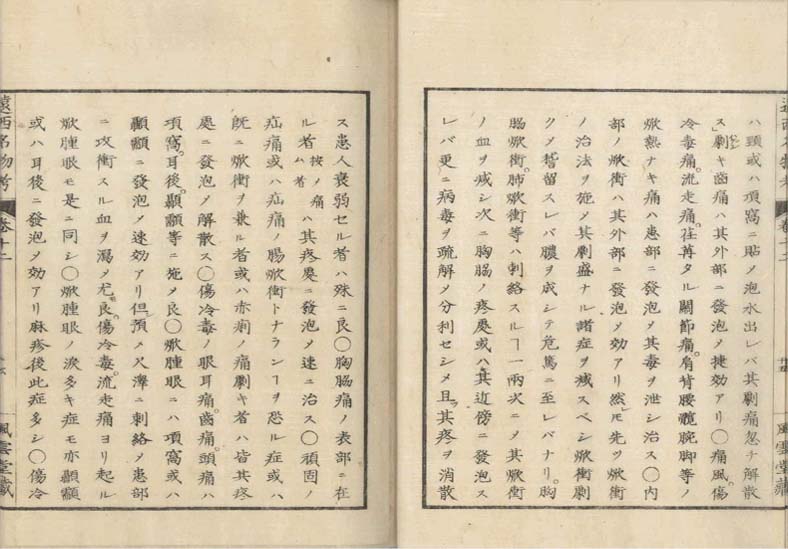 ハ頸或ハ項窩ニ貼メ泡水出レバ其劇痛忽チ解散
ス劇キ齒痛ハ其外部ニ發泡メ捷効アリ〇痛風傷
冷毒痛。流走痛。荏苒タル關節痛。肩背腰髖腕脚等ノ
焮熱ナキ痛ハ患部ニ發泡メ其毒ヲ泄シ治ス〇内
部ノ焮衝ハ其外部ニ發泡メ効アリ然ㇾモ先ツ焮衝
ノ治法ヲ施メ其劇盛ナル諸症ヲ減スベシ焮衝劇
クメ稽留スレバ膿ヲ成シテ危篤ニ至レバナリ。胸
脇焮衝。肺焮衝等ハ刺絡スルヿ一兩次ニメ其焮衝
ノ血ヲ減シ次ニ胸脇ノ疼處或ハ其近傍ニ發泡ス
レバ更ニ病毒ヲ疏解メ分利セシメ且ツ其疼ヲ消散
遠西名物考 卷十二 風雲堂藏
ス患人衰弱セル者ハ殊ニ良〇胸脇痛ノ表部ニ在
ル者按ノ痛ム者ハ其疼處ニ發泡メ速ニ治ス〇頑固ノ
疝痛或ハ疝痛ノ腸焮衝トナランヿヲ恐ル症或ハ
既ニ焮衝ヲ兼ル者或ハ赤痢ノ痛劇キ者ハ皆其疼
處ニ發泡メ解散ス〇傷冷毒ノ眼耳痛。齒痛。頭痛ハ
項窩。耳後。顳顬等ニ施メ良〇焮腫眼ニハ項窩或ハ
顳顬ニ發泡メ速効アリ但預メ尺澤ニ刺絡メ患部
ニ攻衝スル血ヲ瀉メ尤良。傷冷毒。流走痛ヨリ起ル
焮腫眼モ是ニ同シ〇焮腫眼ノ淚多キ症モ亦顳顬
或ハ耳後ニ發泡メ効アリ麻疹後此症多シ〇傷冷
遠西名物考 卷十二 風雲堂藏